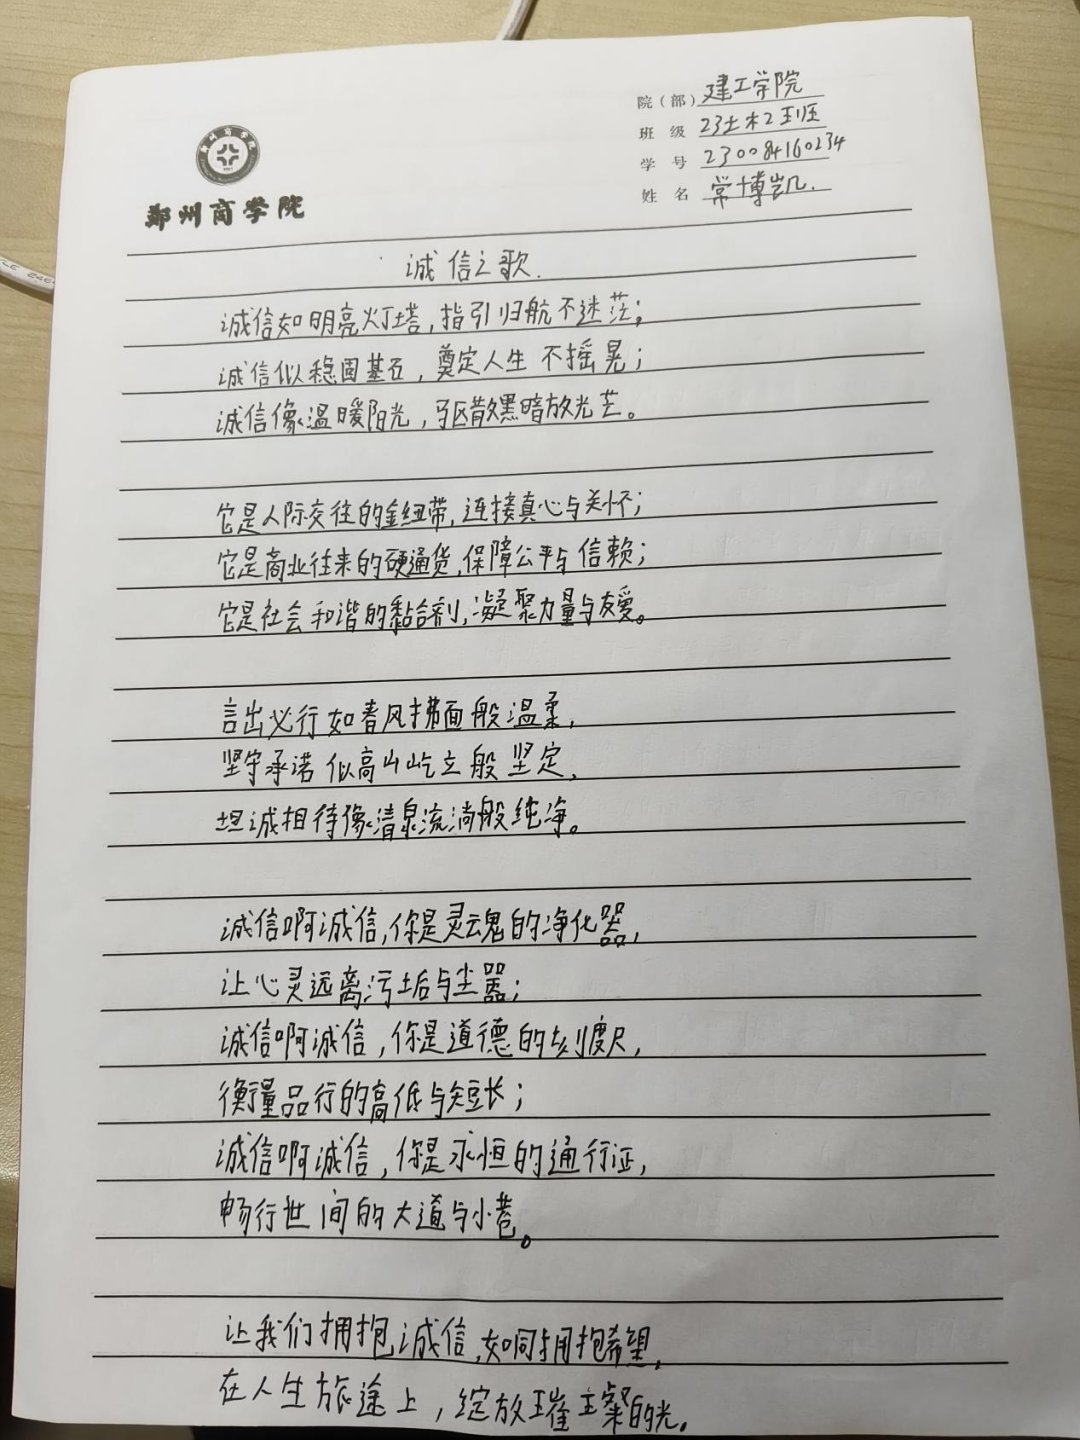 院（部） 建工学院
班 级 23土木2班
学 号 230084160234
姓 名 常博凯.
郑州商学院
诚信之歌.
诚信如明亮灯塔，指引归航不迷茫；
诚信似稳固基石，奠定人生不摇晃；
诚信像温暖阳光，驱散黑暗放光芒。
它是人际交往的金纽带，连接真心与关怀；
它是商业往来的硬通货，保障公平与信赖；
它是社会和谐的黏合剂，凝聚力量与友爱。
言出必行如春风拂面般温柔，
坚守承诺似高山屹立般坚定，
坦诚相待像清泉流淌般纯净。
诚信啊诚信，你是灵魂的净化器，
让心灵远离污垢与尘嚣；
诚信啊诚信，你是道德的刻度尺，
衡量品行的高低与短长；
诚信啊诚信，你是永恒的通行证，
畅行世间的大道与小巷。
让我们拥抱诚信，如同拥抱希望，
在人生旅途上，绽放璀璨的光。